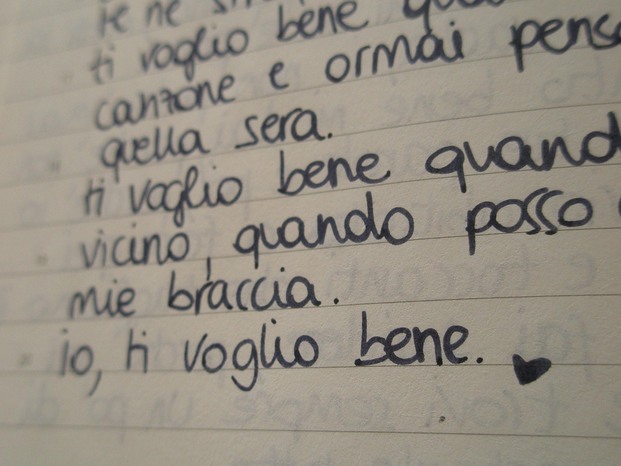 te ne
ti voglio bene
canzone e ormai
quella sera.
ti voglio bene
vicino, quando posso
mie braccia.
io, ti voglio bene.